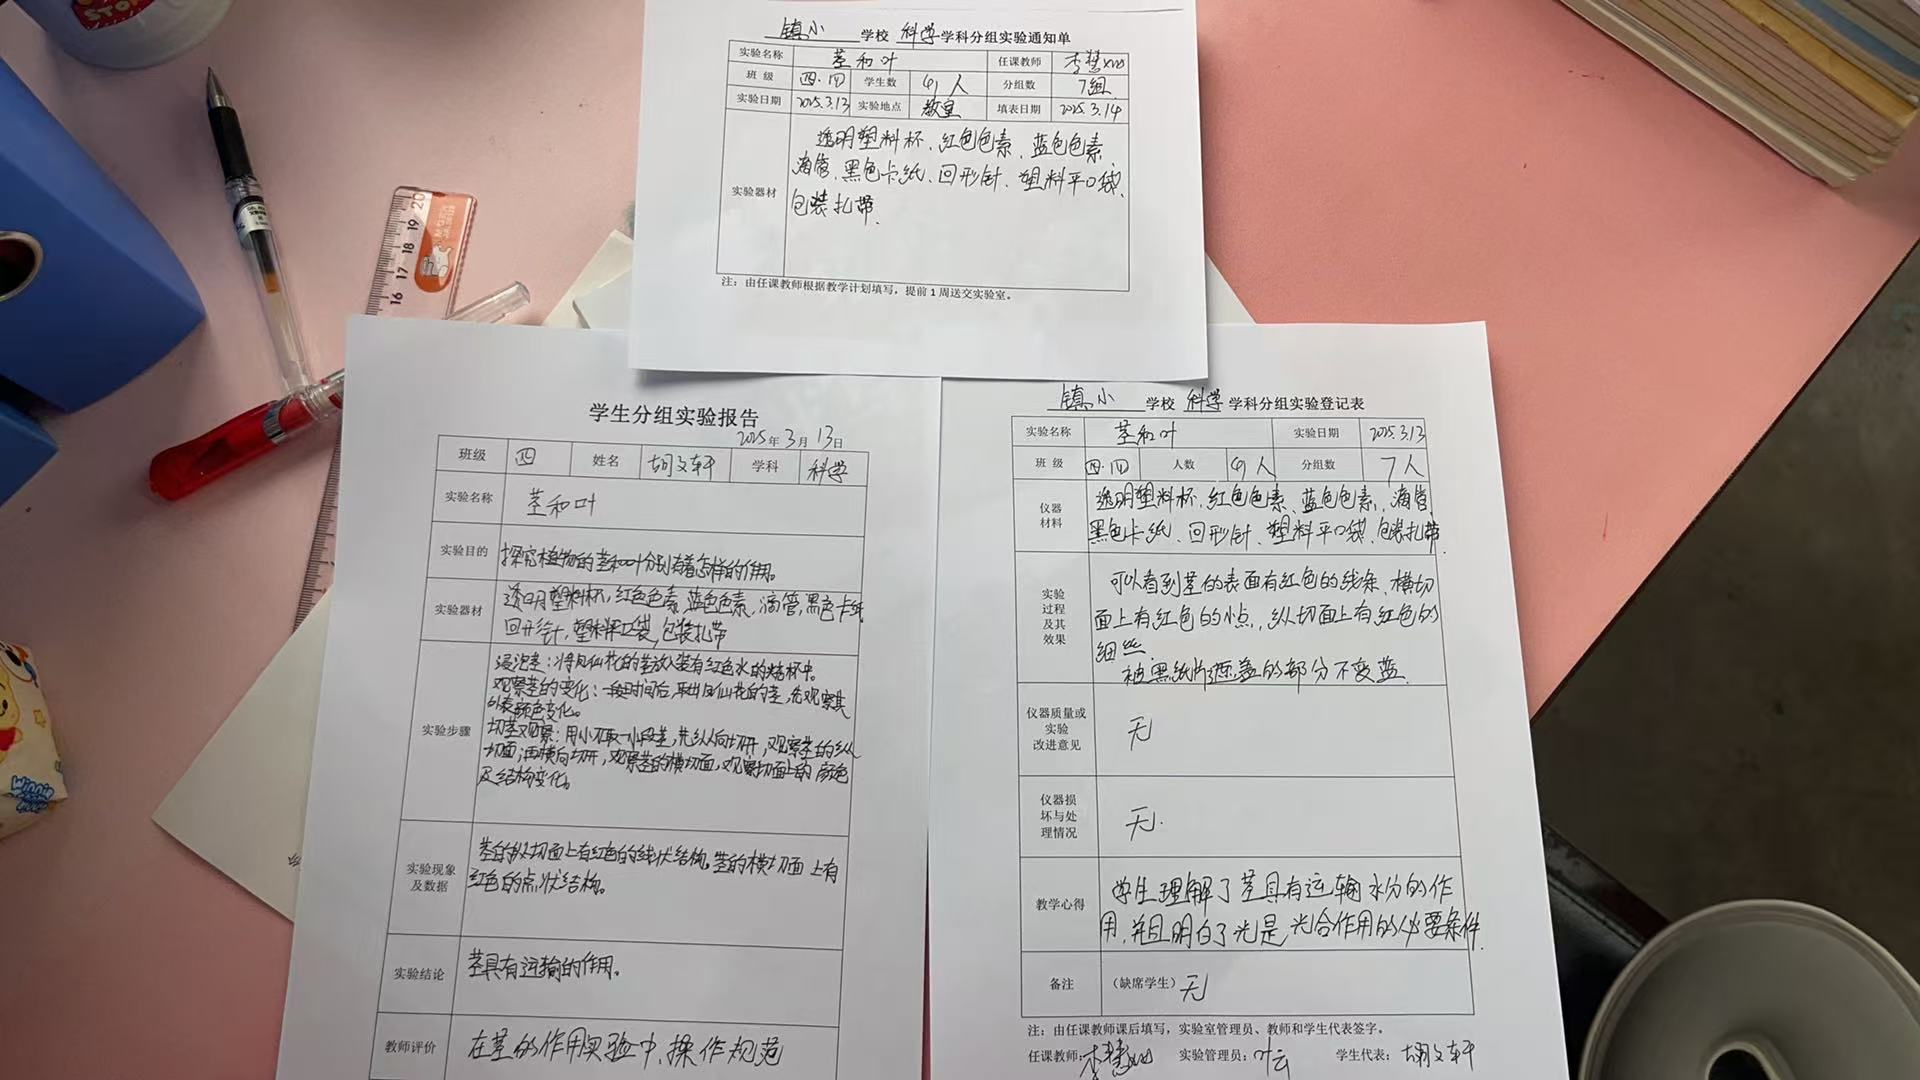 镇小 学校 科学 学科分组实验通知单
实验名称 茎和叶 任课教师
班 级 四.四 学生数 41人 分组数 7组
实验日期 2025.3.13 实验地点 教室 填表日期 2025.3.14
实验器材
透明塑料杯、红色色素、蓝色色素、
滴管、黑色卡纸、回形针、塑料平口袋、
包装扎带.
注：由任课教师根据教学计划填写，提前1周送交实验室。
学生分组实验报告
2025年3月13日
班级 四 姓名 胡文轩 学科 科学
实验名称 茎和叶
实验目的 探究植物的茎和叶分别有着怎样的作用。
实验器材
透明塑料杯，红色色素，蓝色色素，滴管，黑色卡纸
回形针，塑料平口袋，包装扎带
实验步骤
浸泡茎：将凤仙花的茎放入装有红色水的烧杯中。
观察茎的变化：一段时间后，取出凤仙花的茎，先观察其
外表颜色变化。
切茎观察：用小刀取一小段茎，先纵向切开，观察茎的纵
切面；再横向切开，观察茎的横切面，观察切面上的颜色
及结构变化。
实验现象
及数据
茎的纵切面上有红色的线状结构。茎的横切面上有
红色的点状结构。
实验结论 茎具有运输的作用。
教师评价 在茎的作用实验中，操作规范
镇小 学校 科学 学科分组实验登记表
实验名称 茎和叶 实验日期 2025.3.13
班 级 四.四 人数 41人 分组数 7人
仪器
材料
透明塑料杯、红色色素、蓝色色素、滴管、
黑色卡纸、回形针、塑料平口袋、包装扎带.
实验
过程
及其
效果
可以看到茎的表面有红色的线条、横切
面上有红色的小点，纵切面上有红色的
细丝.
被黑纸片遮盖的部分不变蓝.
仪器质量或
实验
改进意见
无
仪器损
坏与处
理情况
无.
教学心得
学生理解了茎具有运输水分的作
用，并且明白了光是光合作用的必要条件.
备注 （缺席学生）无
注：由任课教师课后填写，实验室管理员、教师和学生代表签字。
任课教师： 实验管理员：叶云 学生代表：胡文轩